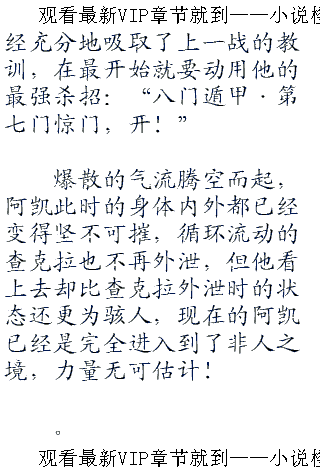 观看最新VIP章节就到——小说
经充分地吸取了上一战的教
训，在最开始就要动用他的
最强杀招：“八门遁甲·第
七门惊门，开！”
爆散的气流腾空而起，
阿凯此时的身体内外都已经
变得坚不可摧，循环流动的
查克拉也不再外泄，但他看
上去却比查克拉外泄时的状
态还更为骇人，现在的阿凯
已经是完全进入到了非人之
境，力量无可估计！
。
观看最新VIP章节就到——小说